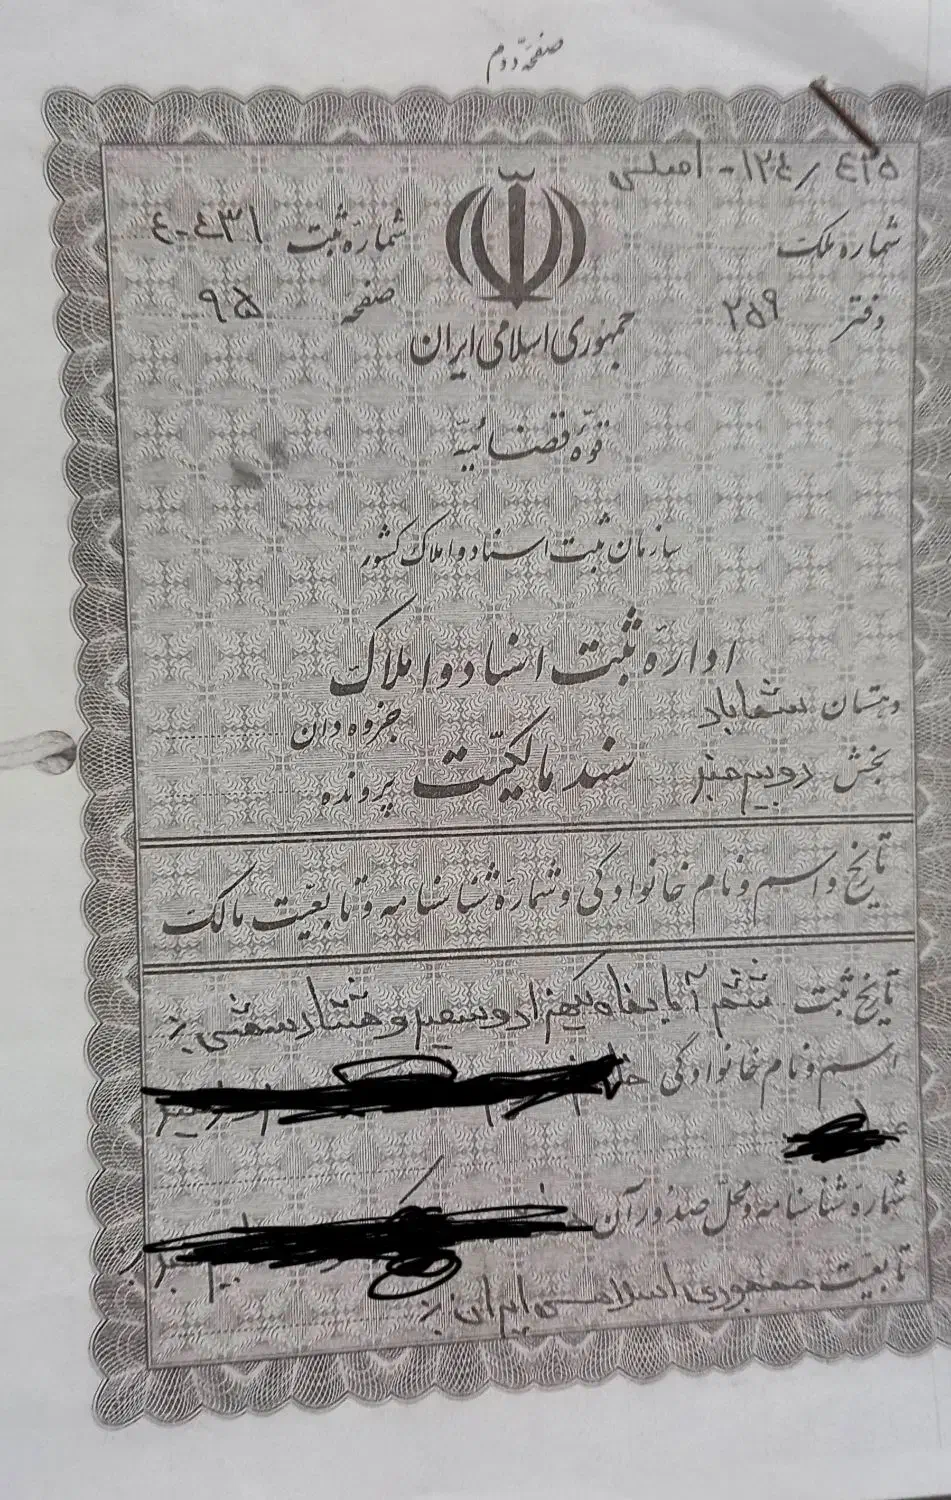 صفحه دوم
۵۳۴ / ۱۲۴- اصلی
شماره ملک
شماره ثبت ۴۰۴۳۱
دفتر ۲۵۹
صفحه ۹۵
جمهوری اسلامی ایران
قوه قضائیه
سازمان ثبت اسناد و املاک کشور
اداره ثبت اسناد و املاک
دهستان شماباد
جزوه دان
سند مالکیت
بخش دو بیرجند
پرونده
تاریخ و اسم و نام خانوادگی و شماره شناسنامه و تابعیت مالک
تاریخ ثبت ششم آبانماه یکهزار و سیصد و هشتاد و شش
اسم و نام خانوادگی
شماره شناسنامه و محل صدور آن
تابعیت جمهوری اسلامی ایران